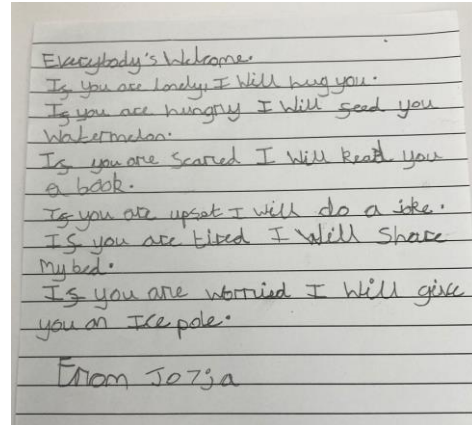 Everybody's Welcome.
If you are lonely, I Will hug you.
If you are hungry I Will feed you
Watermelon.
If you are Scared I Will Read you
a book.
If you are upset I will do a joke.
If you are tired I Will Share
my bed.
If you are worried I Will give
you an Ice pole.
From Jozja